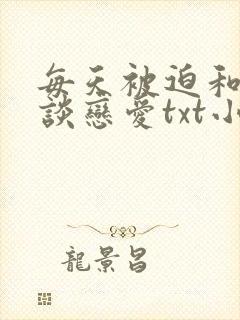 每天被迫和
談戀愛txt小
龍景昌